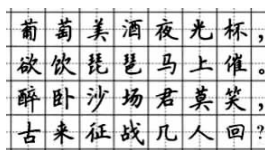 葡萄美酒夜光杯，
欲饮琵琶马上催。
醉卧沙场君莫笑，
古来征战几人回？